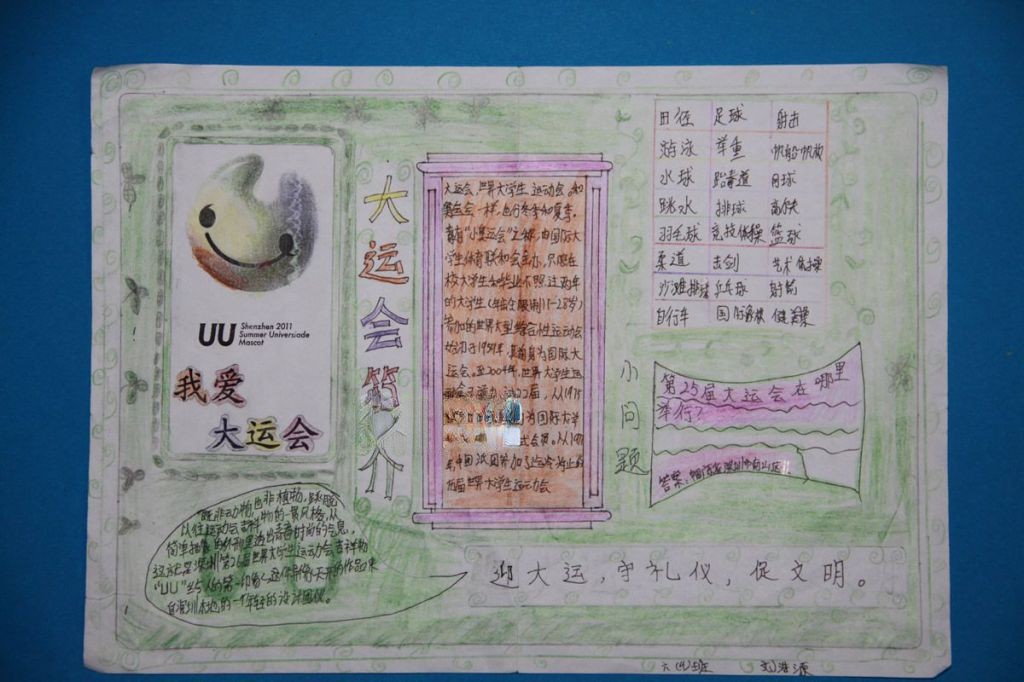 UU Shenzhen 2011
Summer Universiade
Mascot
我爱
大运会
大运会简介
大运会,世界大学生运动会。和
奥运会一样,也分冬季和夏季。
素有“小奥运会”之称,由国际大
学生体育联合会主办,只限在
校大学生和毕业不超过两年
的大学生(年龄限制17-28岁)
参加的世界大型综合性运动会
始办于1959年,其前身为国际大
运会。至2004年,世界大学生运
届,从1975
为国际大学
中国派团参加了
世界大学生运动会
田径 足球 射击
游泳 举重 帆船帆板
水球 跆拳道 网球
跳水 排球
羽毛球 竞技体操 篮球
柔道 击剑 艺术体操
沙滩排球 乒乓球 射箭
自行车 国际象棋 健美操
小问题
第25届大运会在哪里
举行?
答案:
既非动物也非植物,跳脱
以往运动会吉祥物的一贯风格,从
简单抽象的外形里透出青春时尚的气息,
这就是深圳第26届世界大学生运动会吉祥物
“UU”给人的第一印象。这件异想天开的作品来
自深圳本地的一个年轻的设计团队。
迎大运,守礼仪,促文明。
六(4)班 刘浩源